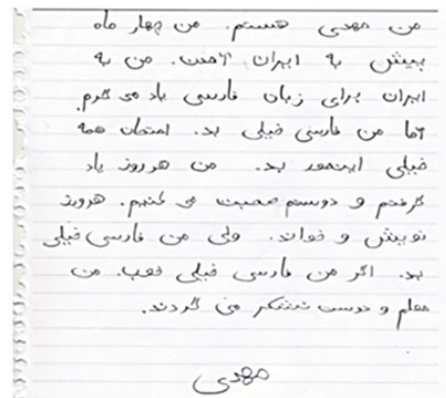 من مهدی هستم. من چهار ماه
پیش به ایران آمدن. من به
ایران برای زبان فارسی یاد می گرم.
اما من فارسی خیلی بد. امتحان همه
خیلی اینمور بد. من هر روز یاد
گرفتم و دوستم صحبت می کنیم. هروز
نویش و خواند. ولی من فارسی خیلی
بد. اگر من فارسی خیلی خوب. من
معلم و دوست تشکر می گردند.
مهدی